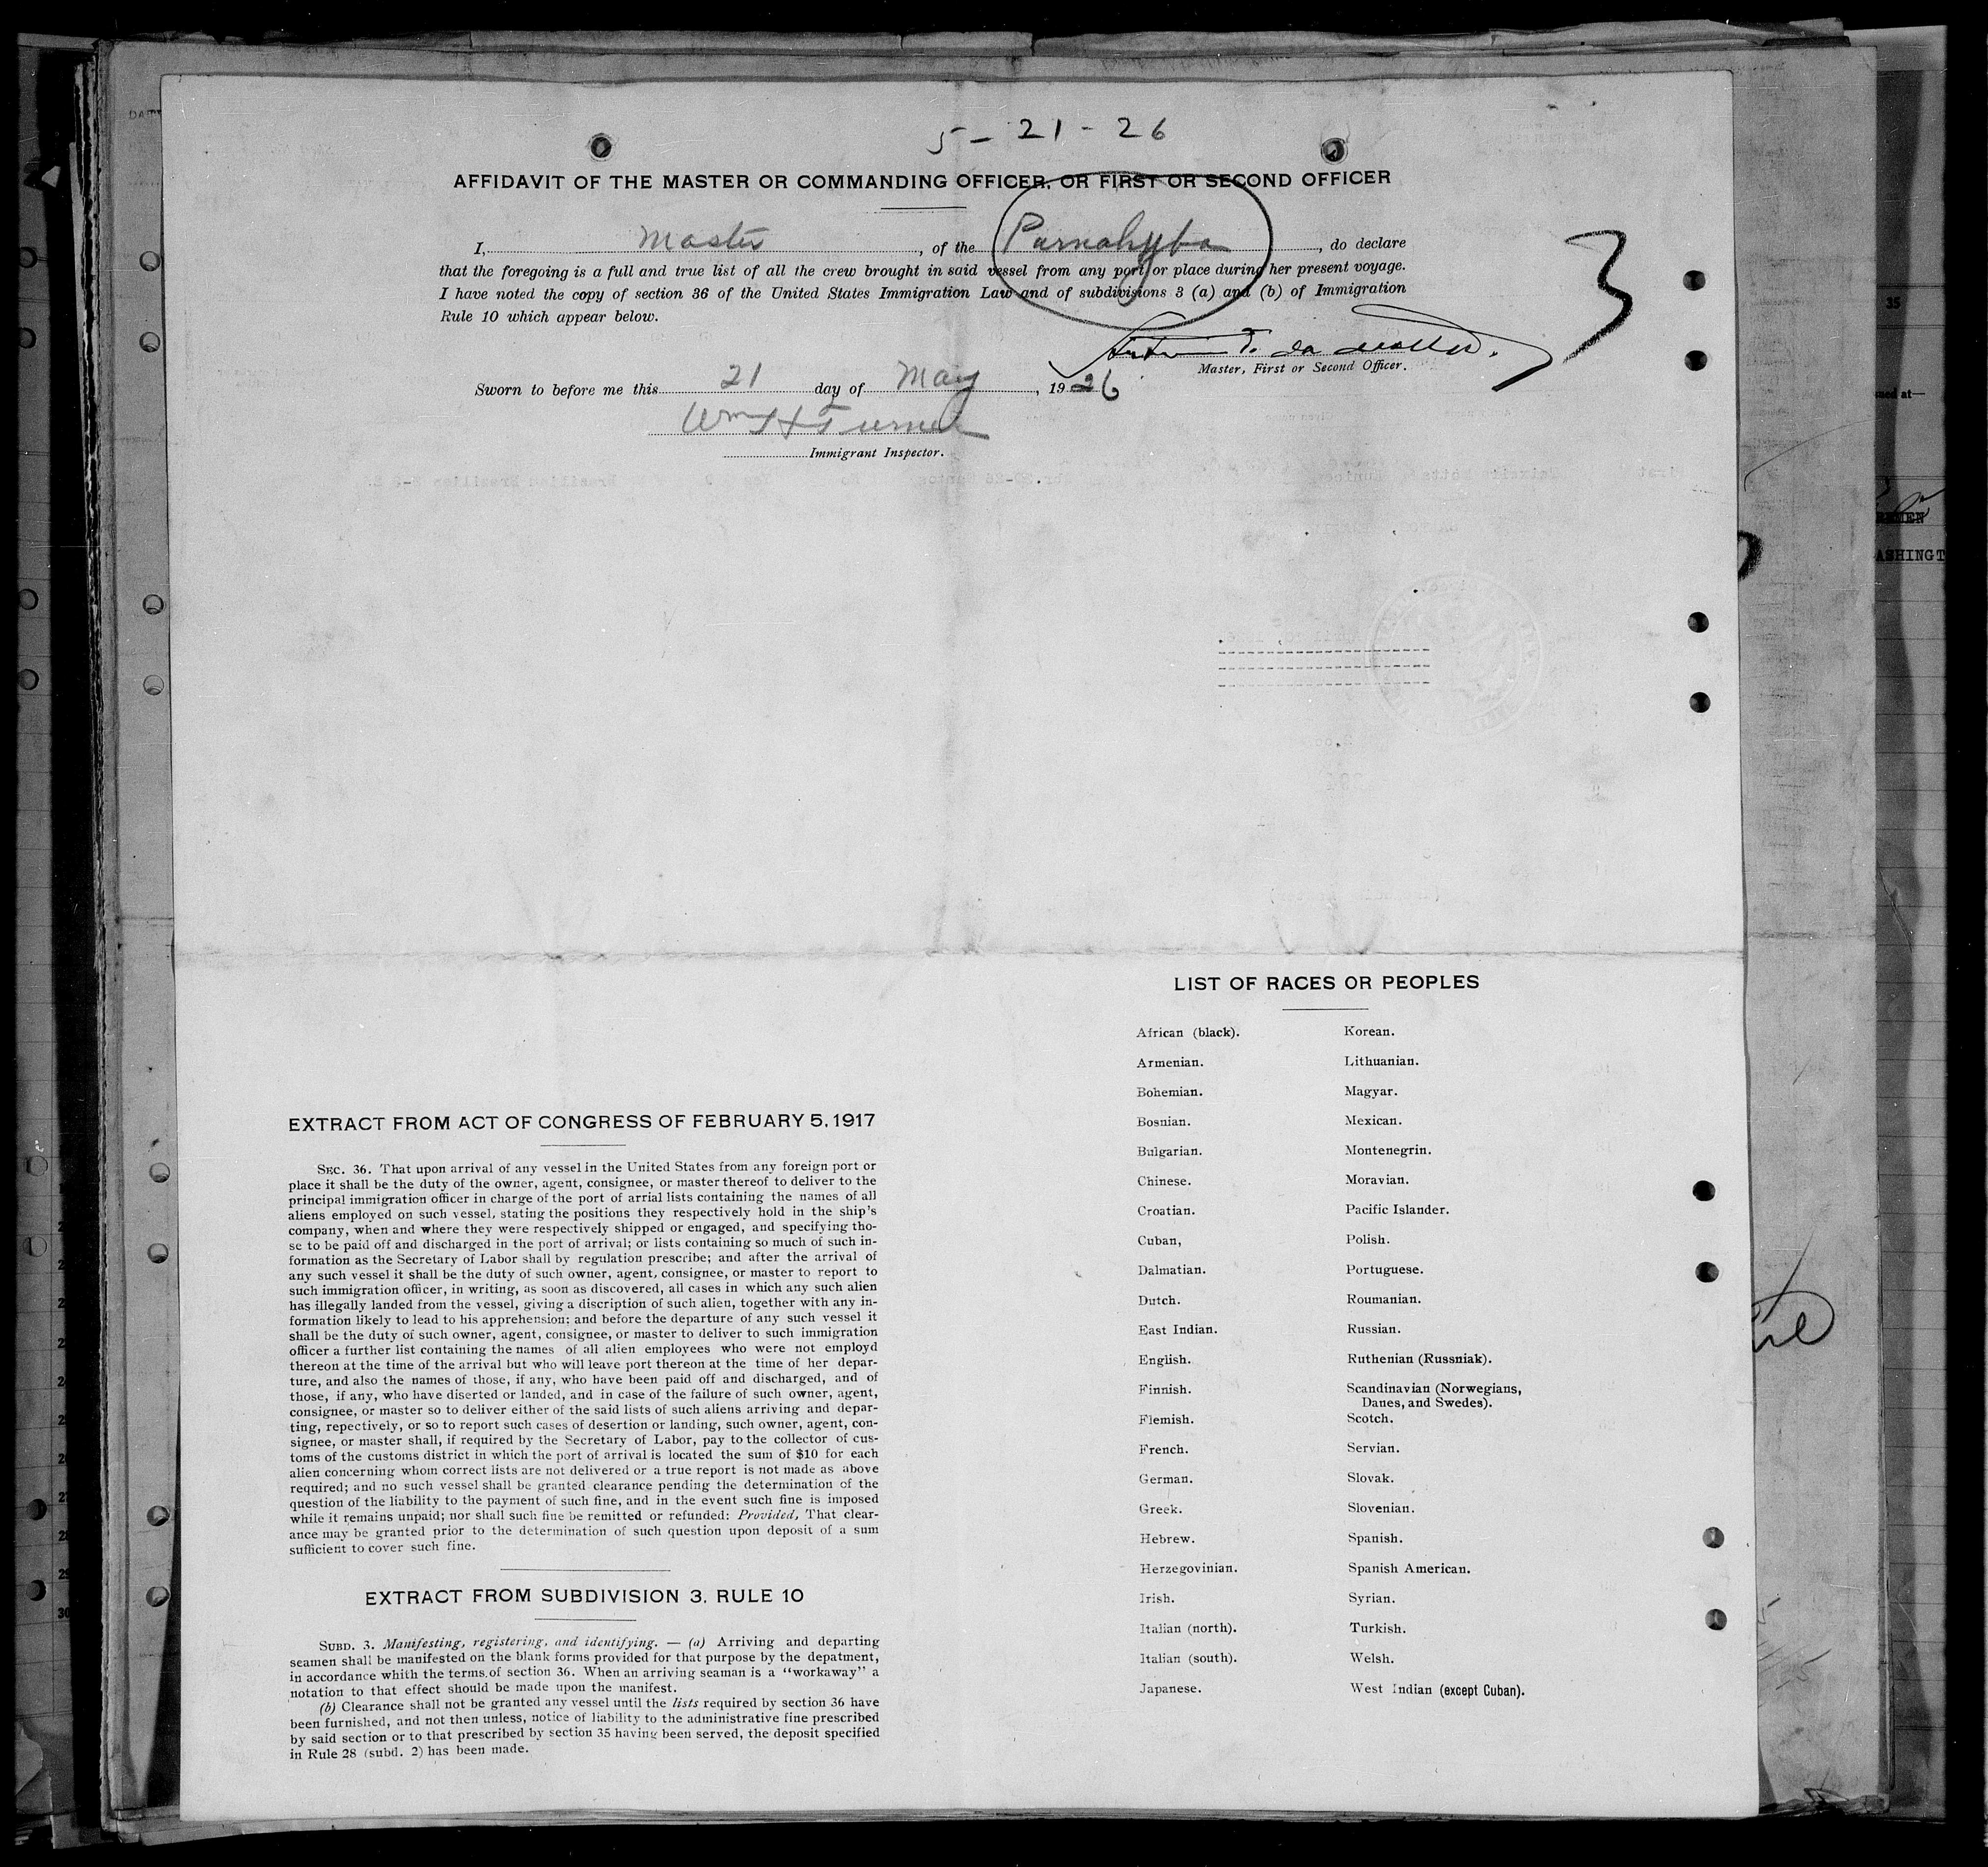 5-21-26
AFFIDAVIT OF THE MASTER OR COMMANDING OFFICER, OR FIRST OR SECOND OFFICER
I, Master, of the Parnahyba, do declare
that the foregoing is a full and true list of all the crew brought in said vessel from any port or place during her present voyage.
I have noted the copy of section 36 of the United States Immigration Law and of subdivisions 3 (a) and (b) of Immigration
Rule 10 which appear below.
3
Master, First or Second Officer.
Sworn to before me this 21 day of May, 1926
Wm H Turner
Immigrant Inspector.
EXTRACT FROM ACT OF CONGRESS OF FEBRUARY 5, 1917
SEC. 36. That upon arrival of any vessel in the United States from any foreign port or
place it shall be the duty of the owner, agent, consignee, or master thereof to deliver to the
principal immigration officer in charge of the port of arrial lists containing the names of all
aliens employed on such vessel, stating the positions they respectively hold in the ship's
company, when and where they were respectively shipped or engaged, and specifying tho-
se to be paid off and discharged in the port of arrival; or lists containing so much of such in-
formation as the Secretary of Labor shall by regulation prescribe; and after the arrival of
any such vessel it shall be the duty of such owner, agent, consignee, or master to report to
such immigration officer, in writing, as soon as discovered, all cases in which any such alien
has illegally landed from the vessel, giving a discription of such alien, together with any in-
formation likely to lead to his apprehension; and before the departure of any such vessel it
shall be the duty of such owner, agent, consignee, or master to deliver to such immigration
officer a further list containing the names of all alien employees who were not employd
thereon at the time of the arrival but who will leave port thereon at the time of her depar-
ture, and also the names of those, if any, who have been paid off and discharged, and of
those, if any, who have diserted or landed, and in case of the failure of such owner, agent,
consignee, or master so to deliver either of the said lists of such aliens arriving and depar-
ting, repectively, or so to report such cases of desertion or landing, such owner, agent, con-
signee, or master shall, if required by the Secretary of Labor, pay to the collector of cus-
toms of the customs district in which the port of arrival is located the sum of $10 for each
alien concerning whom correct lists are not delivered or a true report is not made as above
required; and no such vessel shall be granted clearance pending the determination of the
question of the liability to the payment of such fine, and in the event such fine is imposed
while it remains unpaid; nor shall such fine be remitted or refunded: Provided, That clear-
ance may be granted prior to the determination of such question upon deposit of a sum
sufficient to cover such fine.
EXTRACT FROM SUBDIVISION 3, RULE 10
SUBD. 3. Manifesting, registering, and identifying. — (a) Arriving and departing
seamen shall be manifested on the blank forms provided for that purpose by the depatment,
in accordance whith the terms of section 36. When an arriving seaman is a "workaway" a
notation to that effect should be made upon the manifest.
(b) Clearance shall not be granted any vessel until the lists required by section 36 have
been furnished, and not then unless, notice of liability to the administrative fine prescribed
by said section or to that prescribed by section 35 having been served, the deposit specified
in Rule 28 (subd. 2) has been made.
LIST OF RACES OR PEOPLES
African (black).
Armenian.
Bohemian.
Bosnian.
Bulgarian.
Chinese.
Croatian.
Cuban,
Dalmatian.
Dutch.
East Indian.
English.
Finnish.
Flemish.
French.
German.
Greek.
Hebrew.
Herzegovinian.
Irish.
Italian (north).
Italian (south).
Japanese.
Korean.
Lithuanian.
Magyar.
Mexican.
Montenegrin.
Moravian.
Pacific Islander.
Polish.
Portuguese.
Roumanian.
Russian.
Ruthenian (Russniak).
Scandinavian (Norwegians,
Danes, and Swedes).
Scotch.
Servian.
Slovak.
Slovenian.
Spanish.
Spanish American.
Syrian.
Turkish.
Welsh.
West Indian (except Cuban).
35
ASHINGT